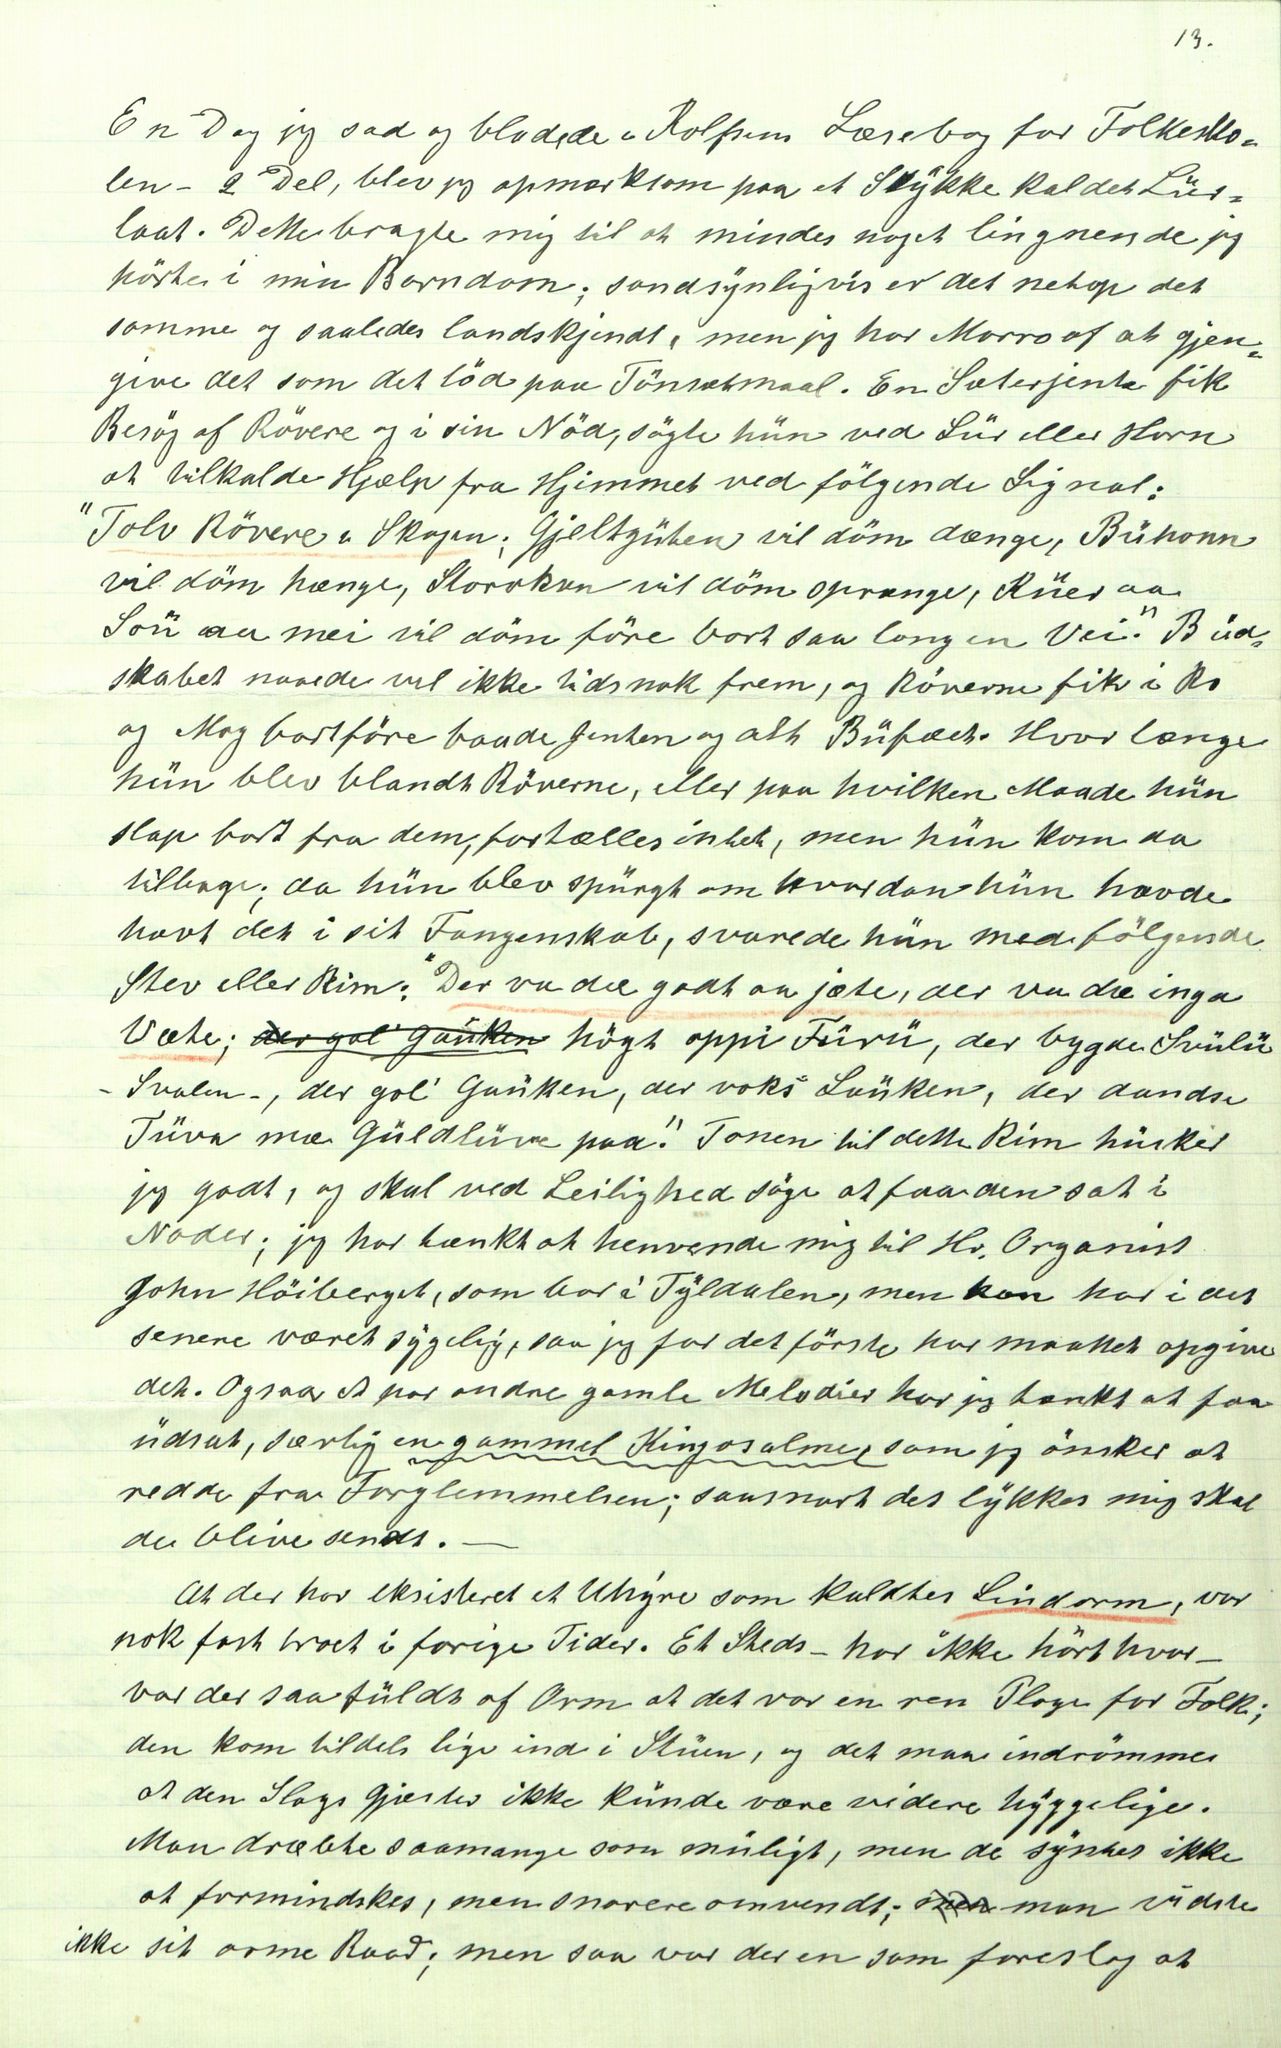 13.
En Dag jeg sad og bladede i Rolfsens Læsebog for Folkesko=
len - 2 Del, blev jeg opmærksom paa et Stykke kaldet Lur=
laat. Dette bragte mig til at mindes noget lingnende jeg
hörte i min Barndom; sandsynligvis er det netop det
samme og saaledes landskjendt, men jeg har Morro af at gjen=
give det som det löd paa Tönsætmaal. En Sæterjente fik
Besög af Rövere og i sin Nöd, sögte hun ved Lur eller Horn
at tilkalde Hjælp fra Hjimmet ved fölgende Signal:
"Tolv Rövere i Skogen; Gjeltguten vil döm dænge, Buhonn
vil döm hænge, Storrkua vil döm sprænge, Kuer aa
Sou aa mei vil döm före bort saa lang en Vei." Bud=
skabet naaede vel ikke tidsnok frem, og Röverne fik i Ro
og Mag bortföre baade Jenten og alt Bufæet. Hvor længe
hun blev blandt Röverne, eller paa hvilken Maade hun
slap bort fra dem, fortælles intet, men hun kom da
tilbage; da hun blev spurgt om hvordan hun havde
havt det i sit Fangenskab, svarede hun med fölgende
Stev eller Rim: "Der va dæ godt aa jæte, der va dæ inga
Væte; der gol' Gauken högt oppi Furu, der bygde Svulu
- Svalen -, der gol' Gauken, der voks' Lauken, der dandse
Tuva mæ Guldluva paa." Tonen til dette Rim husker
jeg godt, og skal ved Leilighed söge at faa den sat i
Noder; jeg har tænkt at henvende mig til Hr. Organist
John Höiberget, som bor i Tyldalen, men han har i det
senere været sygelig, saa jeg for det förste har maattet opgive
det. Ogsaa et par andre gamle Melodier har jeg tænkt at faa
udsat, særlig en gammel Kingosalme, som jeg önsker at
redde fra Forglemmelsen; saasnart det lykkes mig skal
de blive sendt. —
At der har eksisteret et Uhyre som kaldtes Lindorm, var
nok fast troet i forige Tider. Et Steds - har ikke hört hvor -
var der saa fuldt af Orm at det var en ren Plage for Folk;
den kom tildels lige ind i Stuen, og det maa indrömmes
at den Slags Gjæster ikke kunde være videre hyggelige.
Man dræbte saamange som muligt, men de syntes ikke
at formindskes, men snarere omvendt; men man vidste
ikke sit arme Raad; men saa var der en som foreslog at